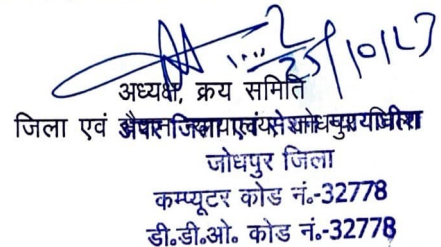 25/10/23
अध्यक्ष, क्रय समिति
जिला एवं
जोधपुर जिला
कम्प्यूटर कोड नं.-32778
डी.डी.ओ. कोड नं.-32778